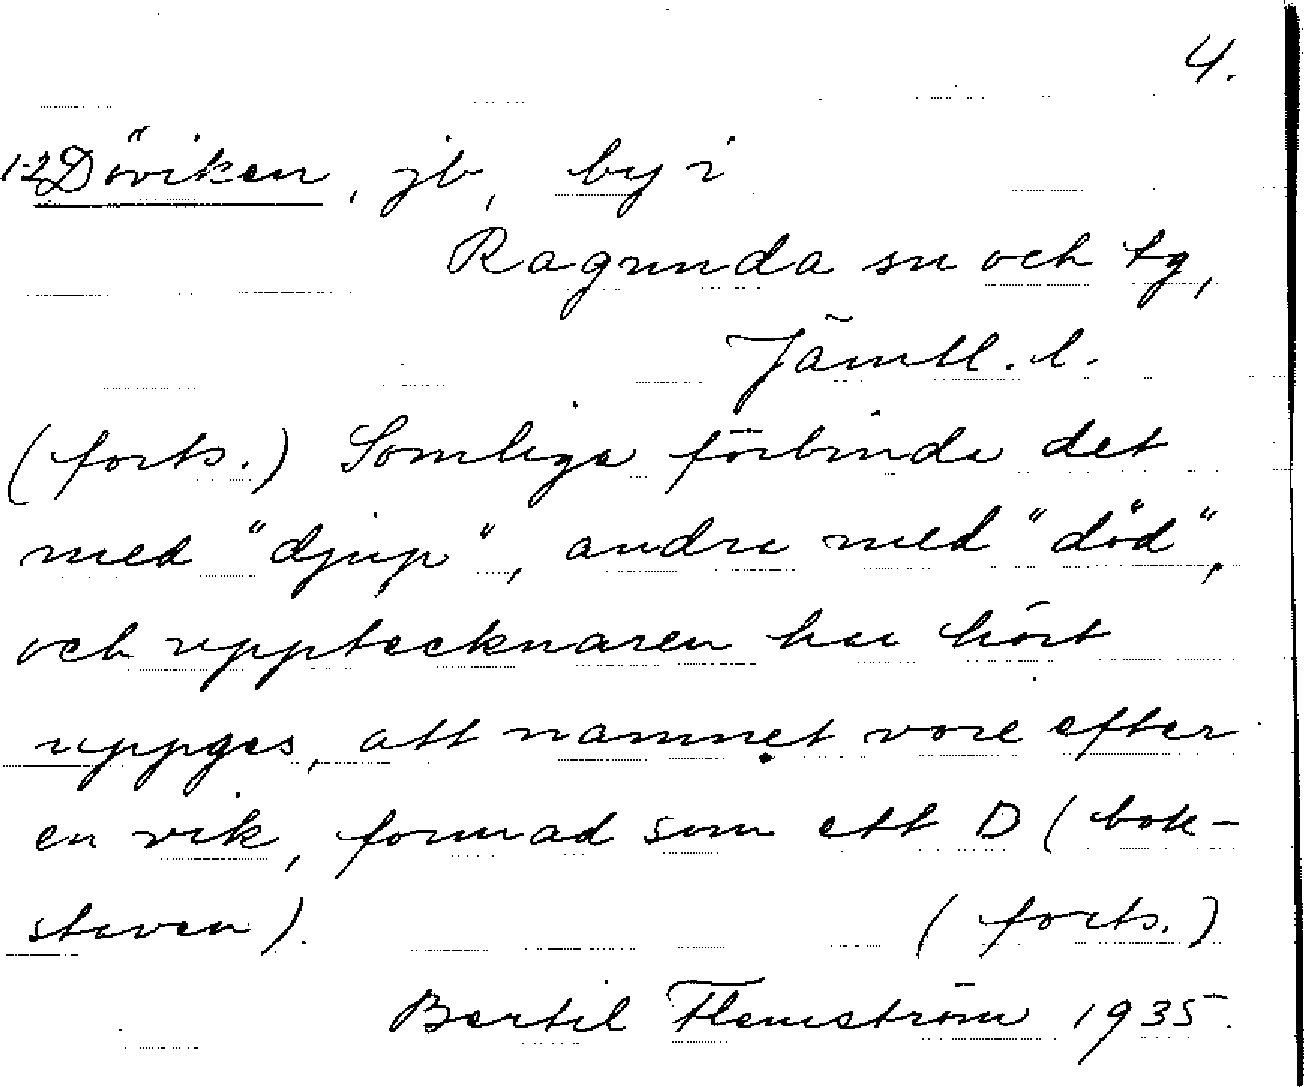 4.
1-2 Döviken, jb, by i
Ragunda sn och tg,
Jämtl. l.
(forts.) Somliga förbinda det
med "djup", andra med "död",
och upptecknaren har hört
uppges, att namnet vore efter
en vik, formad som ett D (bok-
staven).
(forts.)
Bertil Flemström 1935.